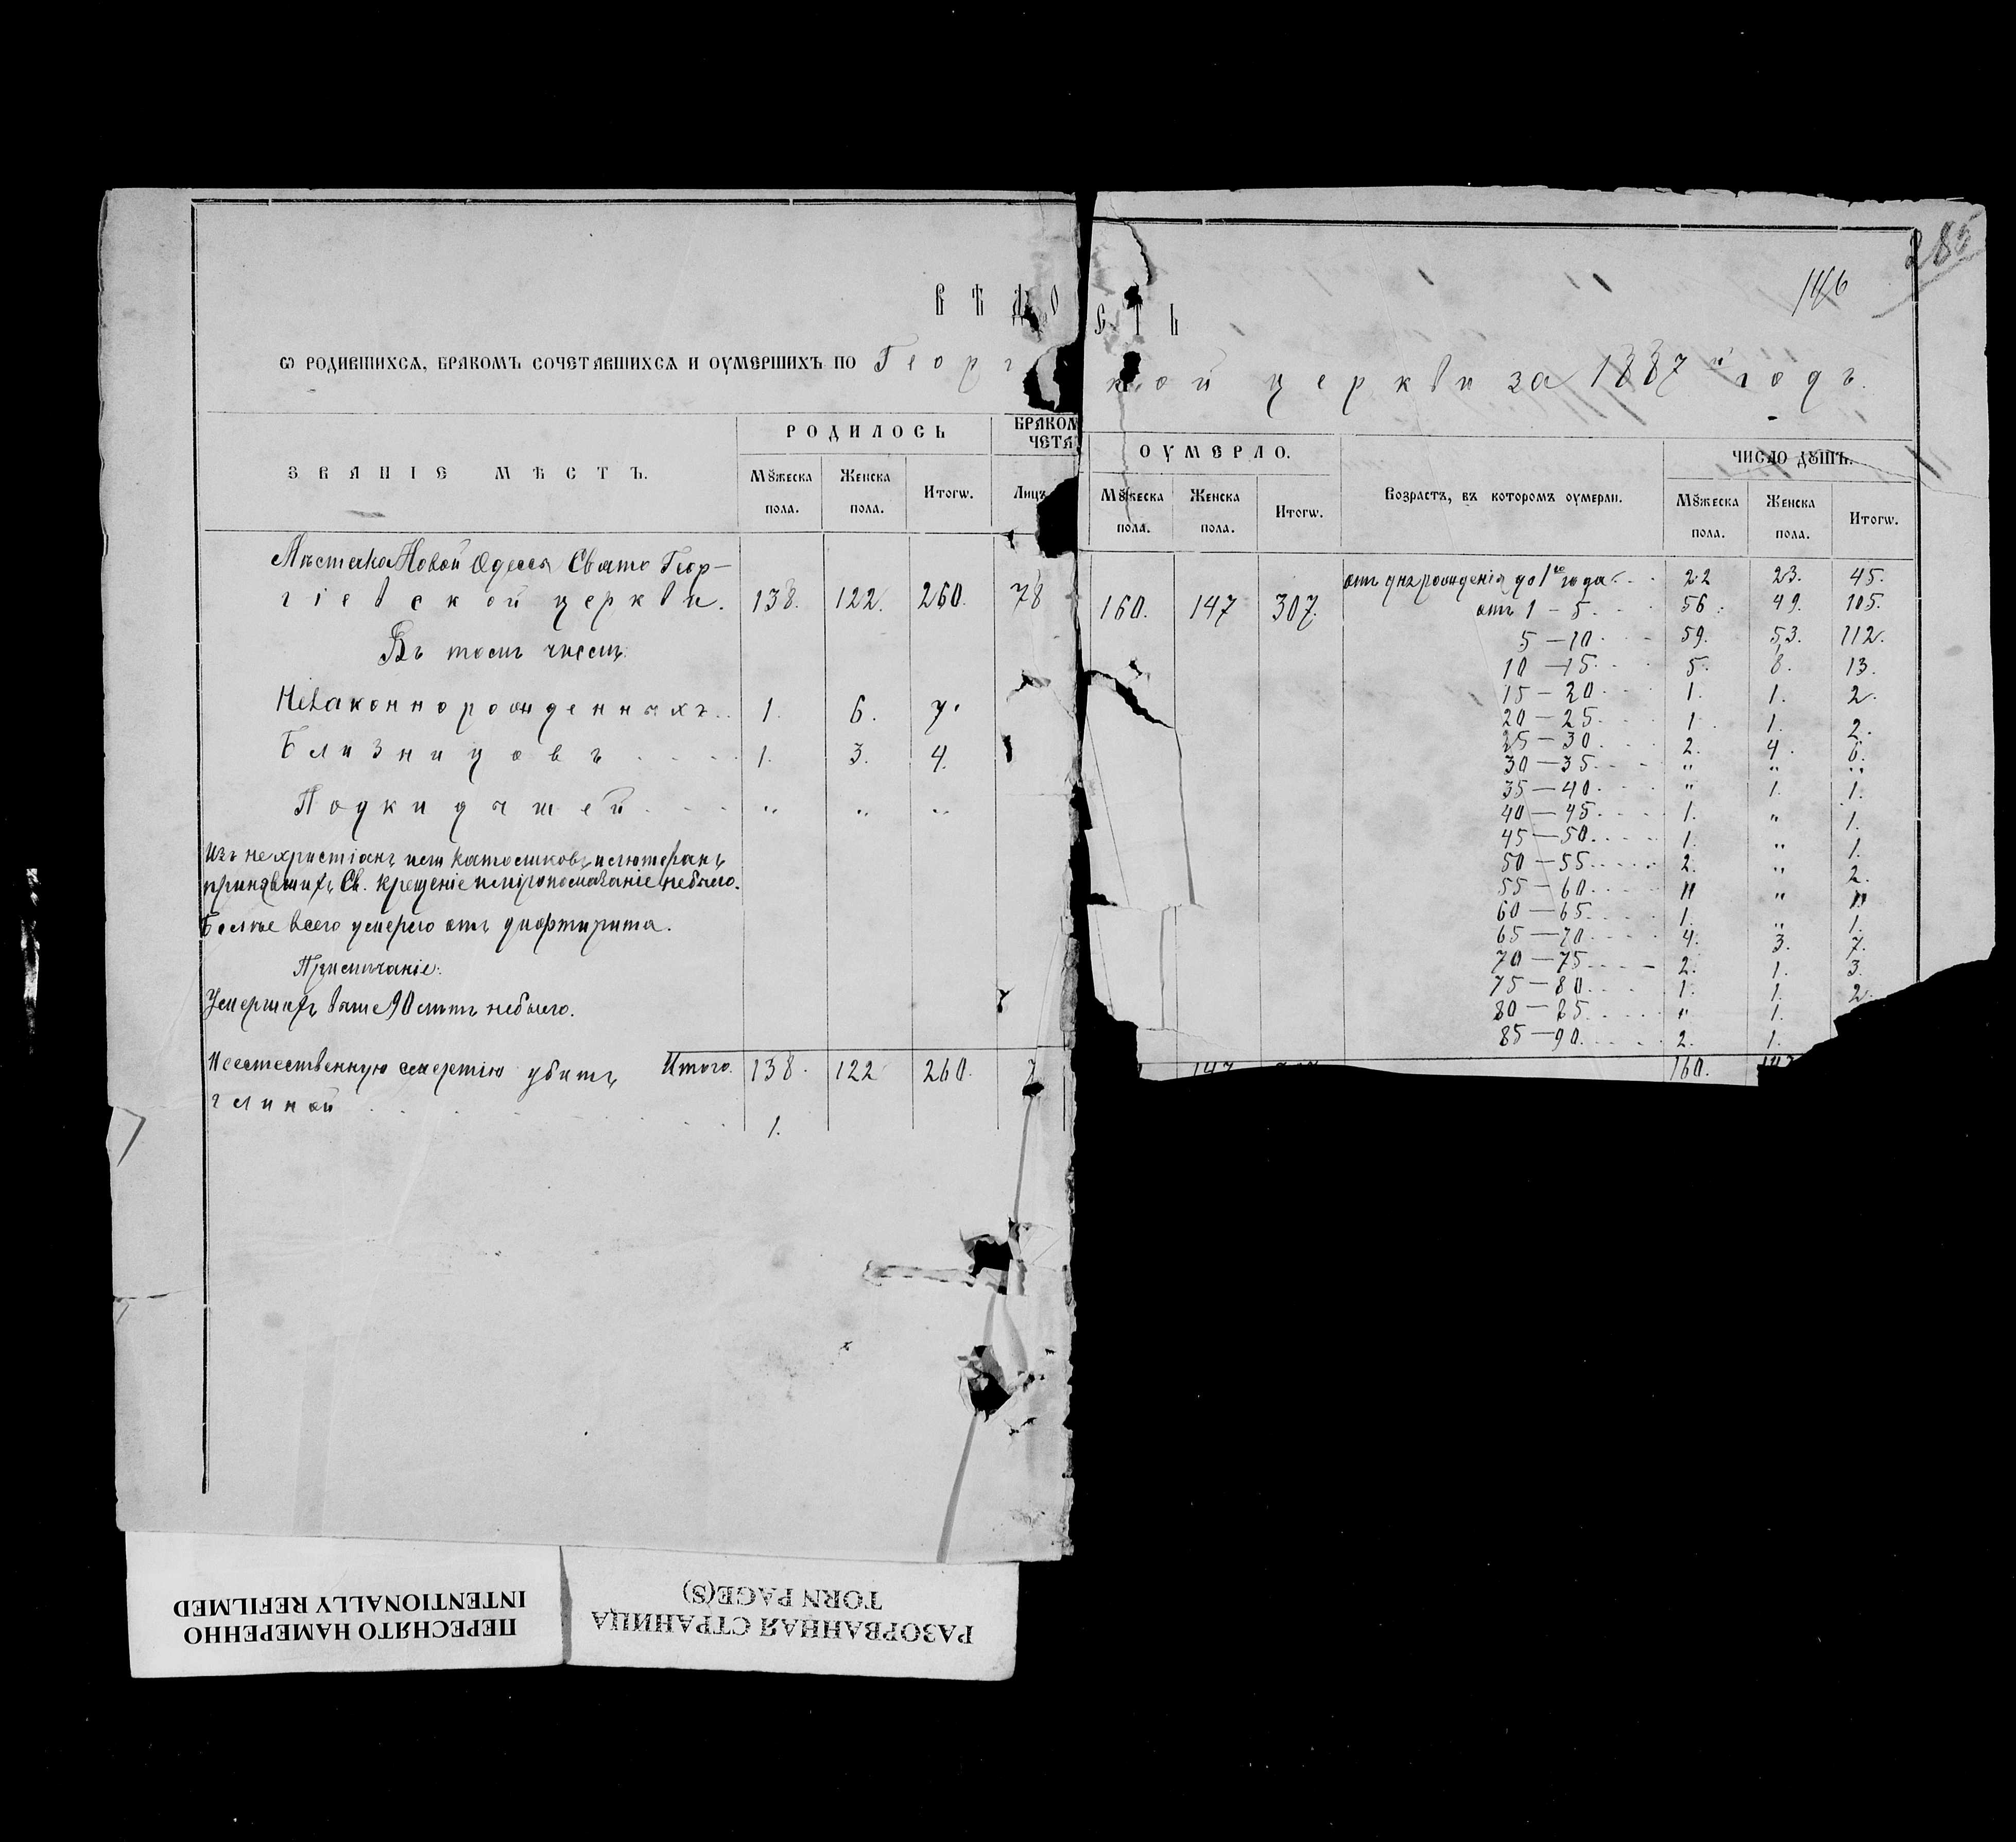 285
146
ВѢДО СТЬ
Ѡ РОДИВШИХСѦ, БРАКОМЪ СОЧЕТАВШИХСѦ И ОУМЕРШИХЪ ПО Георг кой церкви за 1887й годъ.
ЗВАНІЕ МѢСТЪ.
РОДИЛОСЬ
БРАКОМ
ЧЕТА
ОУМЕРЛО.
Возрастъ, въ которомъ оумерли.
ЧИСЛО ДꙊШЪ.
Мꙋжеска пола. Женска пола. Итогѡ. Лицъ
Мꙋжеска пола. Женска пола. Итогѡ.
Мꙋжеска пола. Женска пола. Итогѡ.
Мѣстечка Новой Одессы Свято Геор-
гіевской церкви. 138. 122. 260. 78 160. 147 307.
Въ томъ числѣ:
Незаконнорожденныхъ.. 1. 6. 7.
Близнецовъ . . . . 1. 3. 4.
Подкидышей . . . " " "
Изъ нехристіанъ или католиковъ и лютеранъ
принявшихъ Св. крещеніе и мѵропомазаніе небыло.
Болѣе всего умерло отъ дифтирита.
Примѣчаніе:
Умершихъ выше 90 лѣтъ небыло.
Итого. 138. 122 260. 7
Неестественную смертію убитъ
глиной . . . . . . 1.
отъ дня рожденія до 1го года . . . 22 23. 45.
отъ 1 – 5 . . . 56. 49. 105.
5 – 10 . . . 59. 53. 112.
10 – 15 . . . 5. 8. 13.
15 – 20 . . . 1. 1. 2.
20 – 25 . . . 1. 1. 2.
25 – 30 . . . 2. 4. 6.
30 – 35 . . . " " "
35 – 40 . . . " 1. 1.
40 – 45 . . . 1. " 1.
45 – 50 . . . 1. " 1.
50 – 55 . . . 2. " 2.
55 – 60 . . . " " "
60 – 65 . . . 1. " 1.
65 – 70 . . . 4. 3. 7.
70 – 75 . . . 2. 1. 3.
75 – 80 . . . 1. 1. 2.
80 – 85 . . . " 1.
85 – 90 . . . 2. 1.
147 160. 147
ПЕРЕСНЯТО НАМЕРЕННО
INTENTIONALLY REFILMED
РАЗОРВАННАЯ СТРАНИЦА
TORN PAGE(S)